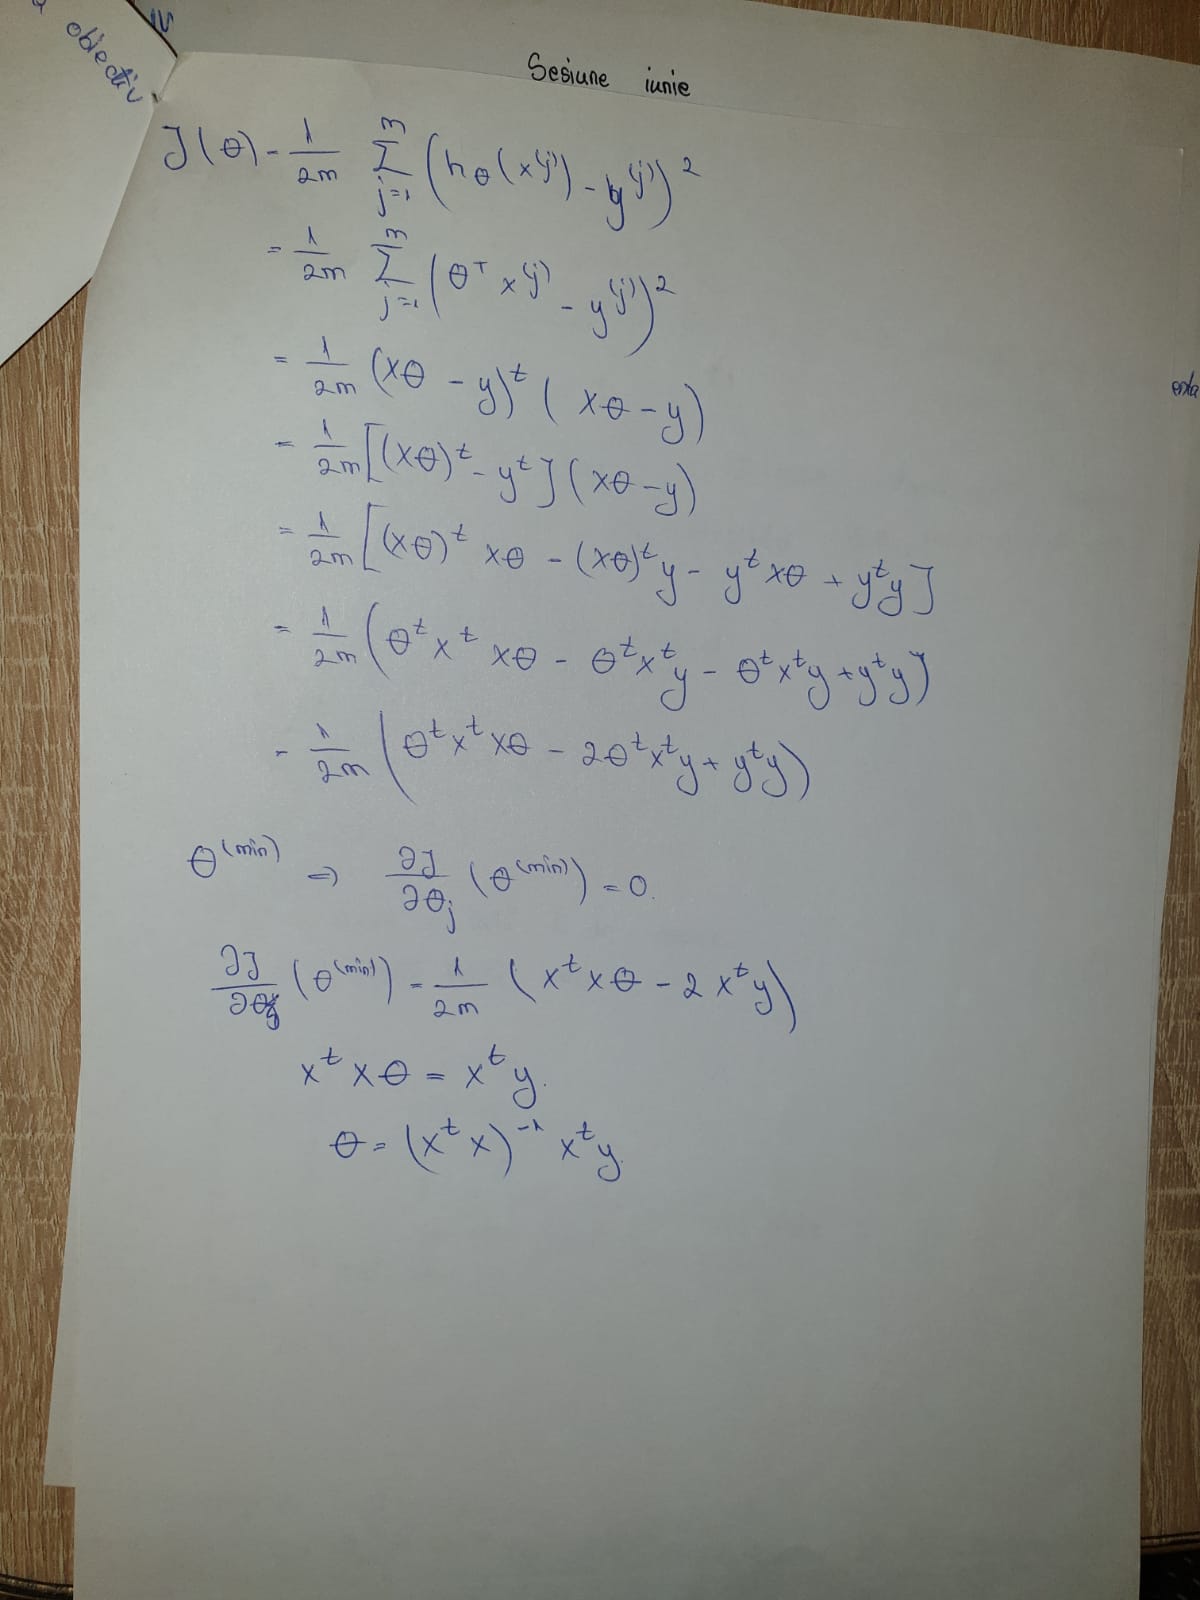 obiectiv
Sesiune iunie
J(θ) = 1/2m Σ_{j=1}^{m} (h_θ(x^(j)) - y^(j))^2
= 1/2m Σ_{j=1}^{m} (θ^T x^(j) - y^(j))^2
= 1/2m (xθ - y)^t (xθ - y)
= 1/2m [(xθ)^t - y^t] (xθ - y)
= 1/2m [(xθ)^t xθ - (xθ)^t y - y^t xθ + y^t y]
= 1/2m (θ^t x^t xθ - θ^t x^t y - θ^t x^t y + y^t y)
= 1/2m (θ^t x^t xθ - 2θ^t x^t y + y^t y)
θ^(min) ⇒ ∂J/∂θ_j (θ^(min)) = 0.
∂J/∂θ (θ^(min)) = 1/2m (x^t xθ - 2x^t y)
x^t xθ = x^t y.
θ = (x^t x)^-1 x^t y.